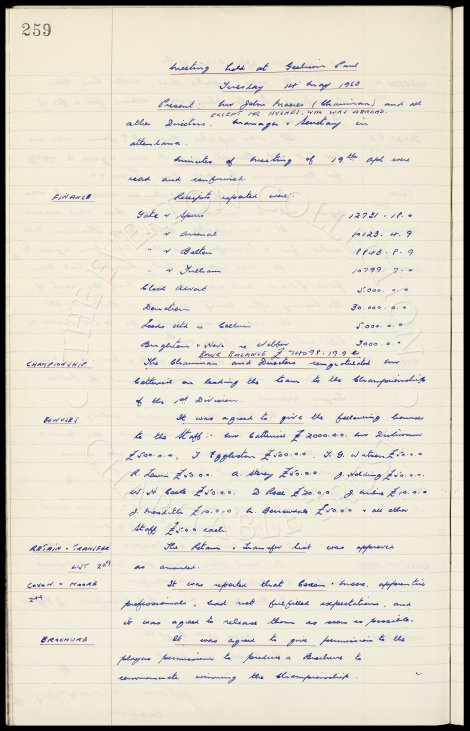 259
Meeting held at Goodison Park
Tuesday 14 May 1963
Present: Mr John Moores (Chairman) and all
EXCEPT MR HUGHES, WHO WAS ABROAD.
other Directors. Manager & Secretary in
attendance.
Minutes of Meeting of 19th Apl were
read and confirmed.
FINANCE Receipts reported were:
Gate v Spurs 12731 . 18 . 0
" v Arsenal 10123 . 4 . 9
" v Bolton 8843 . 8 . 9
" v Fulham 10799 . 7 . 0
Clock Advert 5.000 . 0 . 0
Donation 30.000 . 0 . 0
Leeds Utd re Collins 5.000 . 0 . 0
Brighton & Hove re Webber 3000 . 0 . 0
BANK BALANCE £ 74098 . 19 . 9
CHAMPIONSHIP The Chairman and Directors congratulated Mr
Catterick on leading the team to the Championship
of the 1st Division.
BONUSES It was agreed to give the following bonuses
to the Staff: Mr Catterick £2000.0.0. Mr Dickinson
£500.0.0. T Eggleston £500.0.0. T. G. Watson £50.0.0
R Lewin £50.0.0. A. Storey £50.0.0. J. Holding £50.0.0.
W. H. Cooke £50.0.0. D Rose £20.0.0. J £10.0.0
J. £10.0.0. W. Borrowdale £50.0.0 & all other
Staff £5.0.0 each.
RETAIN & TRANSFER The Retain & Transfer list was approved
LIST as amended.
COXON & MOORE It was reported that Coxon & Moore, apprentice
professionals, had not fulfilled expectations, and
it was agreed to release them as soon as possible.
BROCHURE It was agreed to give permission to the
players permission to produce a Brochure to
commemorate winning the Championship.